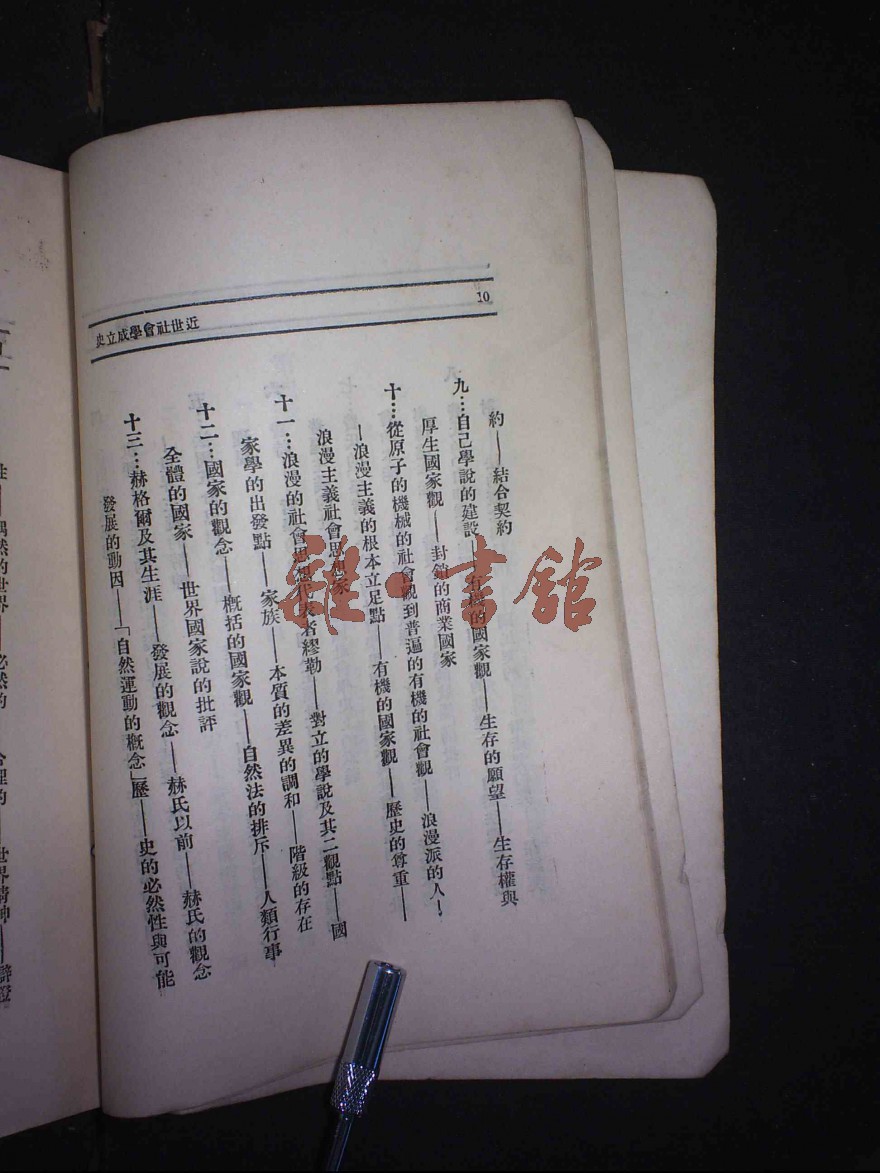 10
近世社會學成立史
約——結合契約
九…自己學說的建設——有機的國家觀——生存的願望——生存權與
厚生國家觀——封鎖的商業國家
十…從原子的機械的社會觀到普遍的有機的社會觀——浪漫派的人！
—浪漫主義的根本立足點——有機的國家觀——歷史的尊重——
浪漫主義社會思想家
十一…浪漫的社會思想代表者繆勒——對立的學說及其二觀點——國
家學的出發點——家族——本質的差異的調和——階級的存在
十二…國家的觀念——概括的國家觀——自然法的排斥——人類行事
全體的國家——世界國家說的批評
十三…赫格爾及其生涯——發展的觀念——赫氏以前——赫氏的觀念
發展的動因——「自然運動的概念」歷——史的必然性與可能
雜·書館